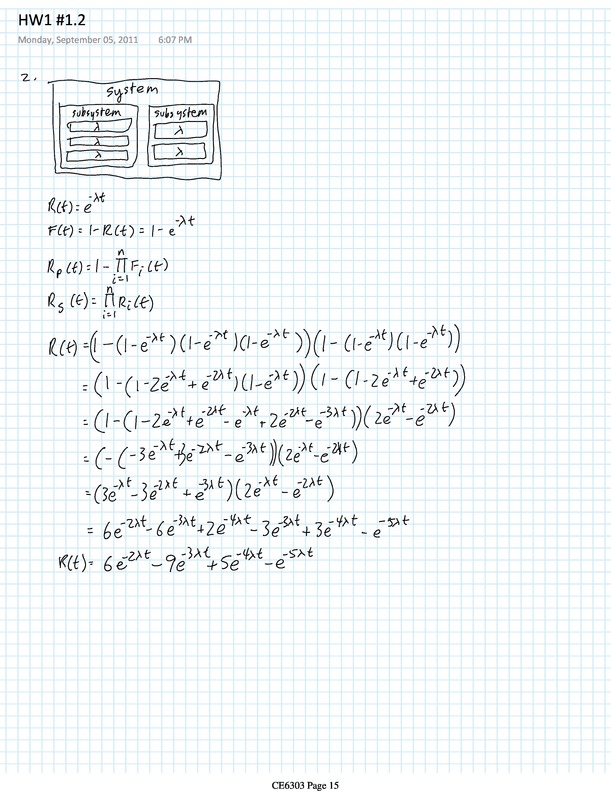 HW1 #1.2
Monday, September 05, 2011 6:07 PM
2.
system
subsystem
λ
λ
λ
subsystem
λ
λ
R(t)=e^{-λt}
F(t)=1-R(t)=1-e^{-λt}
R_p(t)=1-∏_{i=1}^{n}F_i(t)
R_s(t)=∏_{i=1}^{n}R_i(t)
R(t)=(1-(1-e^{-λt})(1-e^{-λt})(1-e^{-λt}))(1-(1-e^{-λt})(1-e^{-λt}))
=(1-(1-2e^{-λt}+e^{-2λt})(1-e^{-λt}))(1-(1-2e^{-λt}+e^{-2λt}))
=(1-(1-2e^{-λt}+e^{-2λt}-e^{-λt}+2e^{-2λt}-e^{-3λt}))(2e^{-λt}-e^{-2λt})
=(-(-3e^{-λt}+3e^{-2λt}-e^{-3λt}))(2e^{-λt}-e^{-2λt})
=(3e^{-λt}-3e^{-2λt}+e^{-3λt})(2e^{-λt}-e^{-2λt})
=6e^{-2λt}-6e^{-3λt}+2e^{-4λt}-3e^{-3λt}+3e^{-4λt}-e^{-5λt}
R(t)=6e^{-2λt}-9e^{-3λt}+5e^{-4λt}-e^{-5λt}
CE6303 Page 15